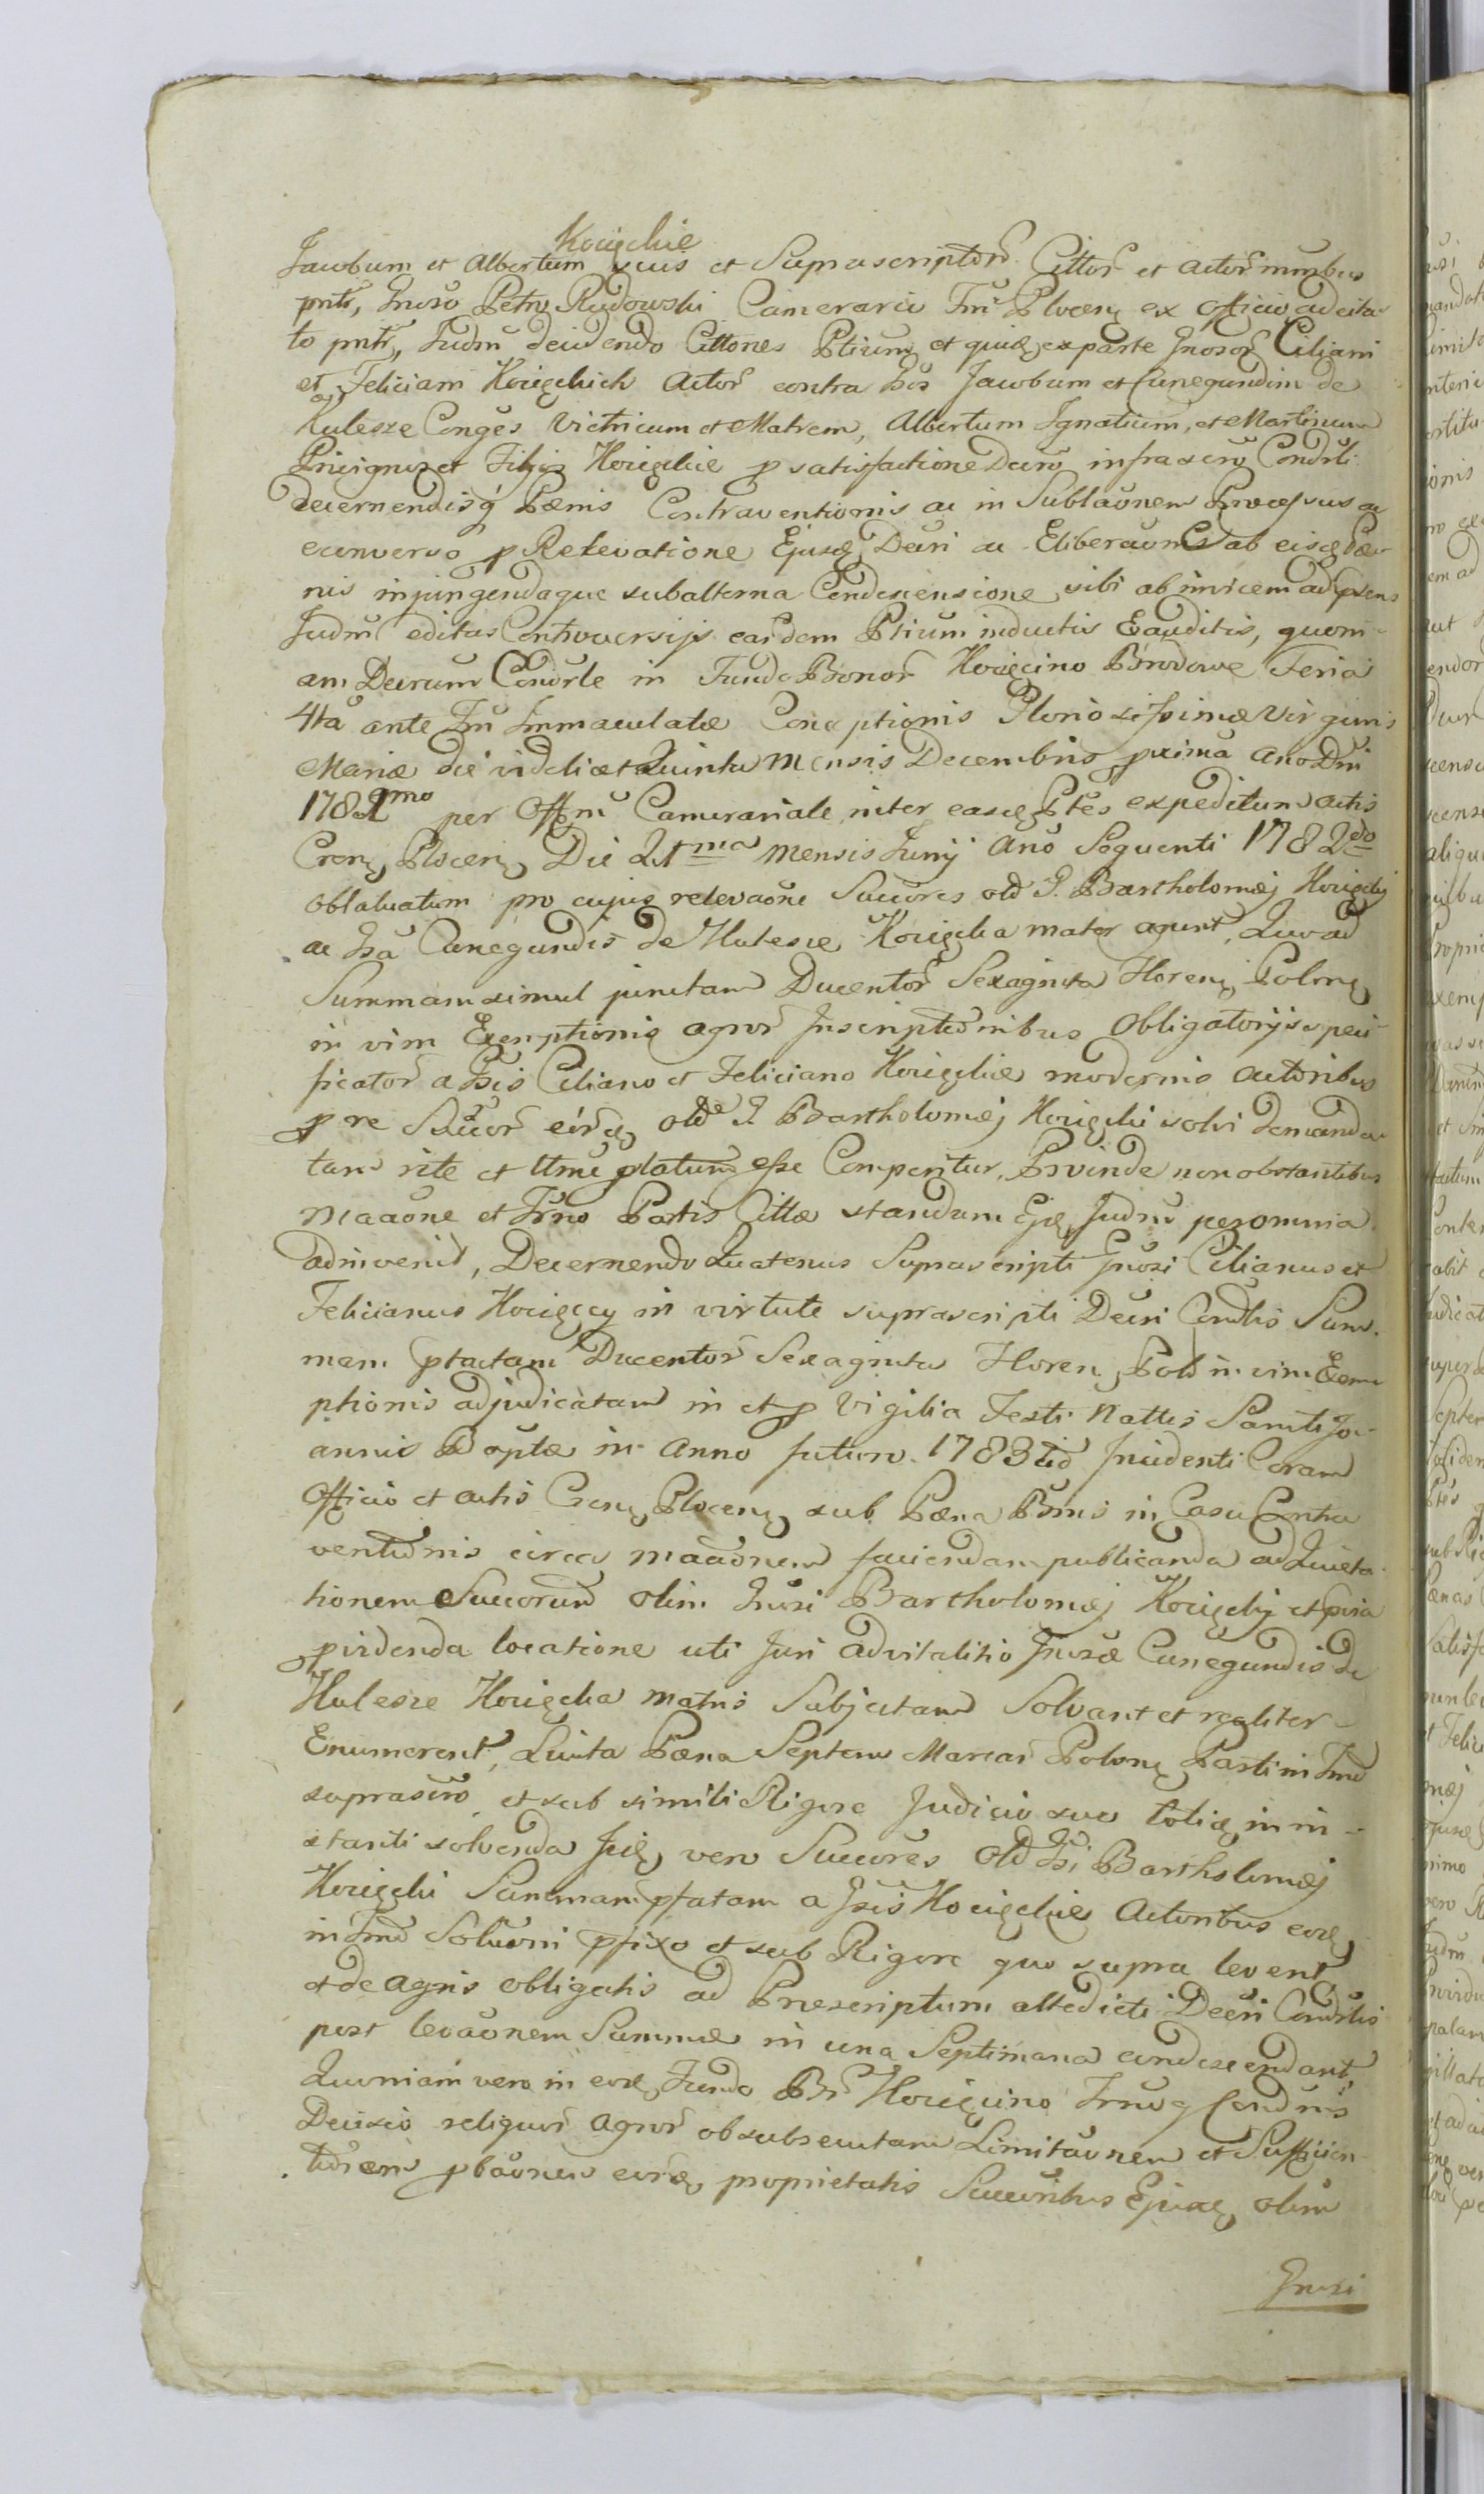 Kocięckie
Jacobum et Albertum suis et Suprascriptor Cittor et actor nninbus
pntr, Gnoso Petro Rudowski Camerario Tri Plocen ex officio adcita
to pntr, Judm decidendo Cittones Ptium et quidē ex parte Gnosor Ciliani
et Feliciani Kocięckich Actor contra Gsos Jacobum et Cunegundim de
Kulesze Conges Vitricum et Matrem, Albertum Ignatium, et Martinum
Privignos et Filios Kocięckie p satisfactione Decro infrascro Condrli
decernendisq Pænis Contraventionis ac in Sublaonem Processus ac
econverso p Relevatione Ejusd Decri ac Eliberaone ab eisd Pæ-
nis injungendaque subalterna Condescensione sibi ab invicem ad psens
Judm editas Controversijs eardem Ptium inductis Exauditis, quoni-
am Decrum Condrle in Fundo Bonor Kocięcino Brodowe Feria
4ta ante Fm Immaculatæ Conceptionis Gloriosissimæ Virginis
Mariæ die videlicet Quinta Mensis Decembris proxima Ano Dni
1781mo per Offm Camerariale inter easd Ptes expeditum actis
Cren Plocen Die 21ma Mensis Junij Ano Sequenti 1782do
oblatuatum pro cujus relevaone Succres old G. Bartholomæj Kocięckij
ac Gsa Cunegundis de Kulesze Kocięcka mater agunt, Quo ad
Summam simul junctam Ducentor Sexaginta Floren Polon
in vim Exemptionis agror Inscriptionibus Obligatorijs speci-
ficator a Gsis Ciliano et Feliciano Kocięckie modernis Actoribus
p re Succor eord old G Bartholomæj Kocięcki solvi demanda-
tam rite et ltme platum esse Comperitur, Proinde non obstantibus
Maaone et Trno Partis Cittæ standum Ejd Judm per omnia
adinvenit, Decernendo Quatenus Suprascripti Gnosi Cilianus et
Felicianus Kocięccy in virtute suprascripti Decri Condrlis Sum-
mam ptactam Ducentor Sexaginta Floren Pol in vim Exem
ptionis adjudicatam in et p Vigilia Festi Nattis Sancti Jo-
annis Baptæ in Anno futuro 1783tio Incidenti Coram
Officio et actis Cren Plocen sub Pæna Bnnis in Casu Contra
ventionis circa maaonem facienda publicanda ad Quieta-
tionem Succorum olim Gnosi Bartholomæj Kocięckij et pvia
pvidenda locatione uti Juri advitalitio Gnosæ Cunegundis de
Kulesze Kocięcka matris Subjectam Solvant et realiter
Enumerent, Quinta Pæna Septem Marcar Polon Parti in Tmo
suprascro et sub simili Rigore Judicio suo toties in in-
stanti solvenda Iid vero Succores Old Gsi Bartholomæj
Kocięcki Summam pfatam a Gsis Kocięckie Actoribus eord
in Tmo Solutioni pfixo et sub Rigore quo supra levent
et de agris obligatis ad Præscriptum attedicti Decri Condrlis
post levaonem Summæ in una Septimana condescendant,
Quoniam vero in eod Fundo Br Kocięcino Trnoq Condrnis
Decisio reliquor agror ob subsecutam Limitaonem et Sufficien-
tiorem pbaonem eord proprietatis Succoribus Ejusd olim
Gnosi